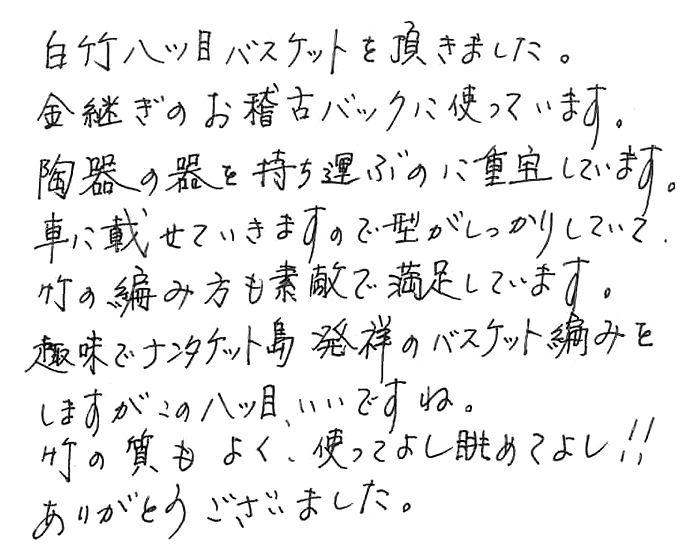 白竹八ツ目バスケットを頂きました。
金継ぎのお稽古バックに使っています。
陶器の器を持ち運ぶのに重宝しています。
車に載せていきますので型がしっかりしていて、
竹の編み方も素敵で満足しています。
趣味でナンタケット島発祥のバスケット編みを
しますがこの八ツ目、いいですね。
竹の質もよく、使ってよし眺めてよし!!
ありがとうございました。